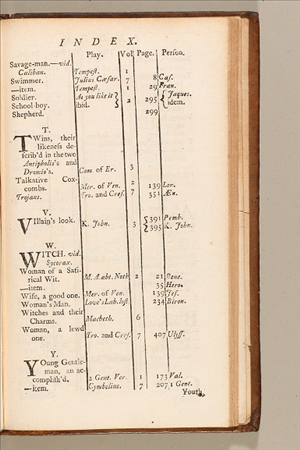 INDEX.
Play. Vol. Page. Person.
Savage-man.—vid.
Caliban. Tempest. 1
Swimmer. Julius Cæsar. 7 8 Cas.
—item. Tempest. 1 29 Fran.
Soldier. As you like it } 2 295 { Jaques.
School-boy. ibid. idem.
Shepherd. 299
T.
TWins, their
likeness de-
scrib'd in the two
Antipholis's and
Dromio's. Com. of Er. 3
Talkative Cox-
combs. Mer. of Ven. 2 139 Lor.
Trojans. Tro. and Cres. 7 351 Æn.
V.
VIllain's look. K. John. 3 { 391 Pemb.
395 K. John.
W.
WITCH. vid.
Sycorax.
Woman of a Sati-
rical Wit. M. Aabt. Noth. 2 21 Bene.
—item. 35 Hero.
Wife, a good one. Mer. of Ven. 139 Jes.
Woman's Man. Love's Lab. lost 234 Biron.
Witches and their
Charms. Macbeth. 6
Woman, a lewd
one. Tro. and Cres. 7 407 Ulyss.
Y.
YOung Gentle-
man, an ac-
complish'd. 2 Gent. Ver. 1 173 Val.
—item. Cymbeline. 7 207 1 Gent.
Youth,